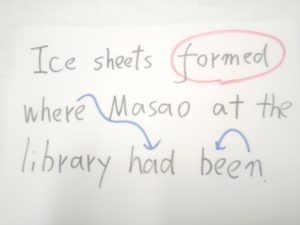 Ice sheets formed
where Masao at the
library had been.